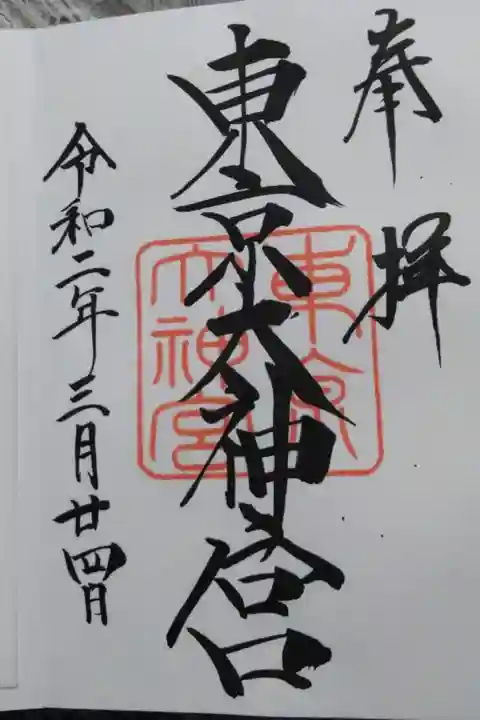 奉拝
東京大神宮
東京
大神宮
令和二年三月廿四日